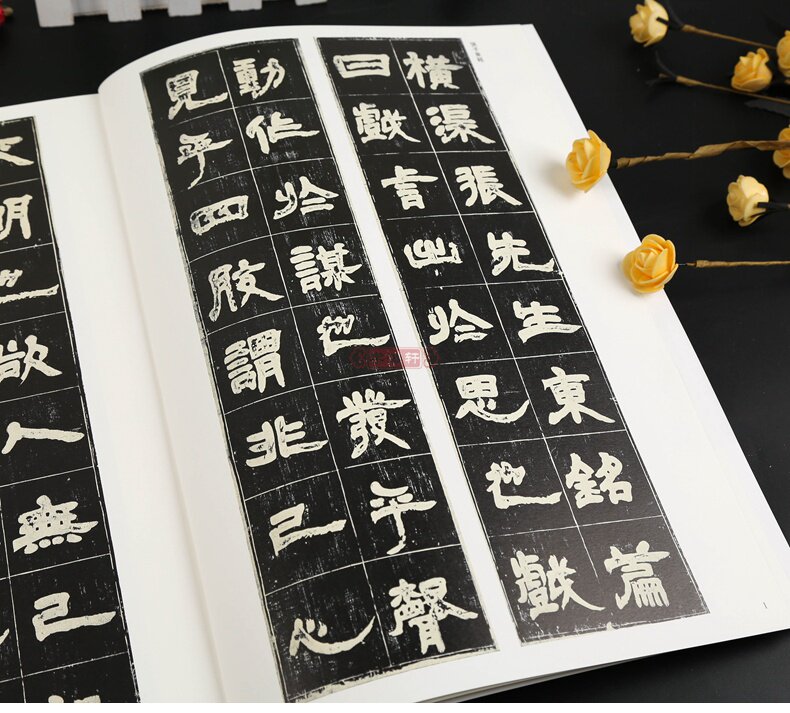 橫渠張先生東銘篇
曰戲言出於思也戲
動作於謀也發乎聲
見乎四肢謂非己心
明也欲人無己
1
軒